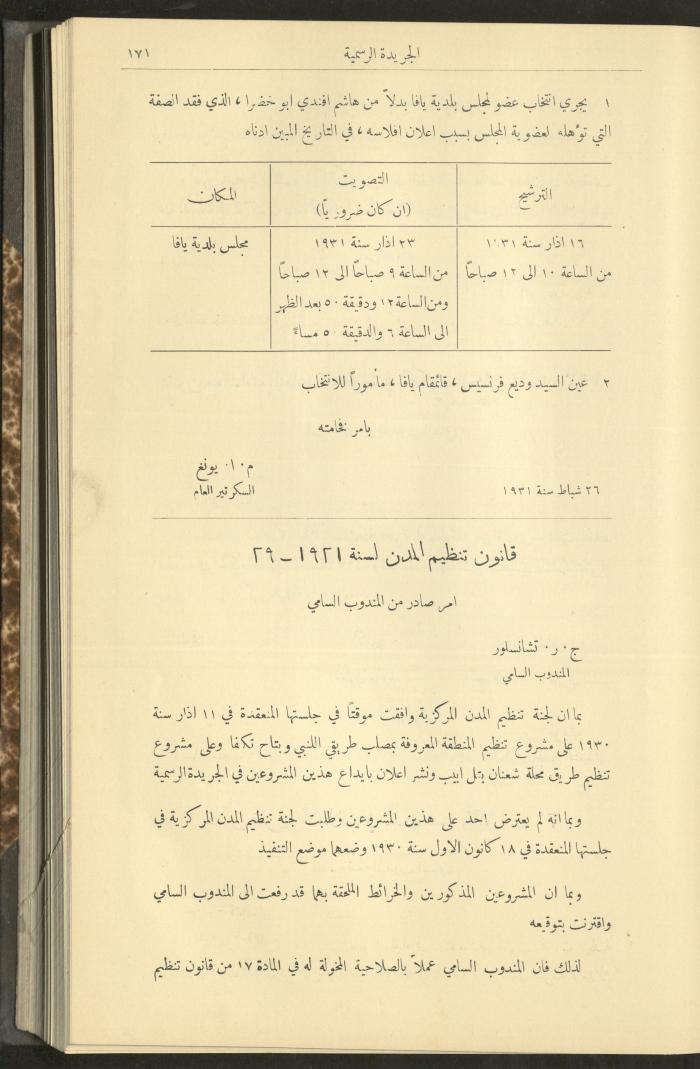 الجريدة الرسمية ١٧١
١ يجري انتخاب عضو لمجلس بلدية يافا بدلاً من هاشم افندي ابو خضرا ، الذي فقد الصفة
التي تؤهله لعضوية المجلس بسبب اعلان افلاسه ، في التاريخ المبين ادناه
الترشيح
التصويت
(ان كان ضرورياً)
المكان
١٦ اذار سنة ١٩٣١
من الساعة ١٠ الى ١٢ صباحاً
٢٣ اذار سنة ١٩٣١
من الساعة ٩ صباحاً الى ١٢ صباحاً
ومن الساعة ١٢ ودقيقة ٥٠ بعد الظهر
الى الساعة ٦ والدقيقة ٥٠ مساءً
مجلس بلدية يافا
٢ عين السيد وديع فرنسيس ، قائمقام يافا ، مأموراً للانتخاب
بامر فخامته
م٠ا٠ يونغ
٢٦ شباط سنة ١٩٣١ السكرتير العام
قانون تنظيم المدن لسنة ١٩٢١ - ٢٩
امر صادر من المندوب السامي
ج٠ ر٠ تشانسلور
المندوب السامي
بما ان لجنة تنظيم المدن المركزية وافقت موقتاً في جلستها المنعقدة في ١١ اذار سنة
١٩٣٠ على مشروع تنظيم المنطقة المعروفة بمصلب طريقي اللنبي وبتاح تكفا وعلى مشروع
تنظيم طريق محلة شعنان بتل ابيب ونشر اعلان بايداع هذين المشروعين في الجريدة الرسمية
وبما انه لم يعترض احد على هذين المشروعين وطلبت لجنة تنظيم المدن المركزية في
جلستها المنعقدة في ١٨ كانون الاول سنة ١٩٣٠ وضعهما موضع التنفيذ
وبما ان المشروعين المذكورين والخرائط الملحقة بهما قد رفعت الى المندوب السامي
واقترنت بتوقيعه
لذلك فان المندوب السامي عملاً بالصلاحية المخولة له في المادة ١٧ من قانون تنظيم